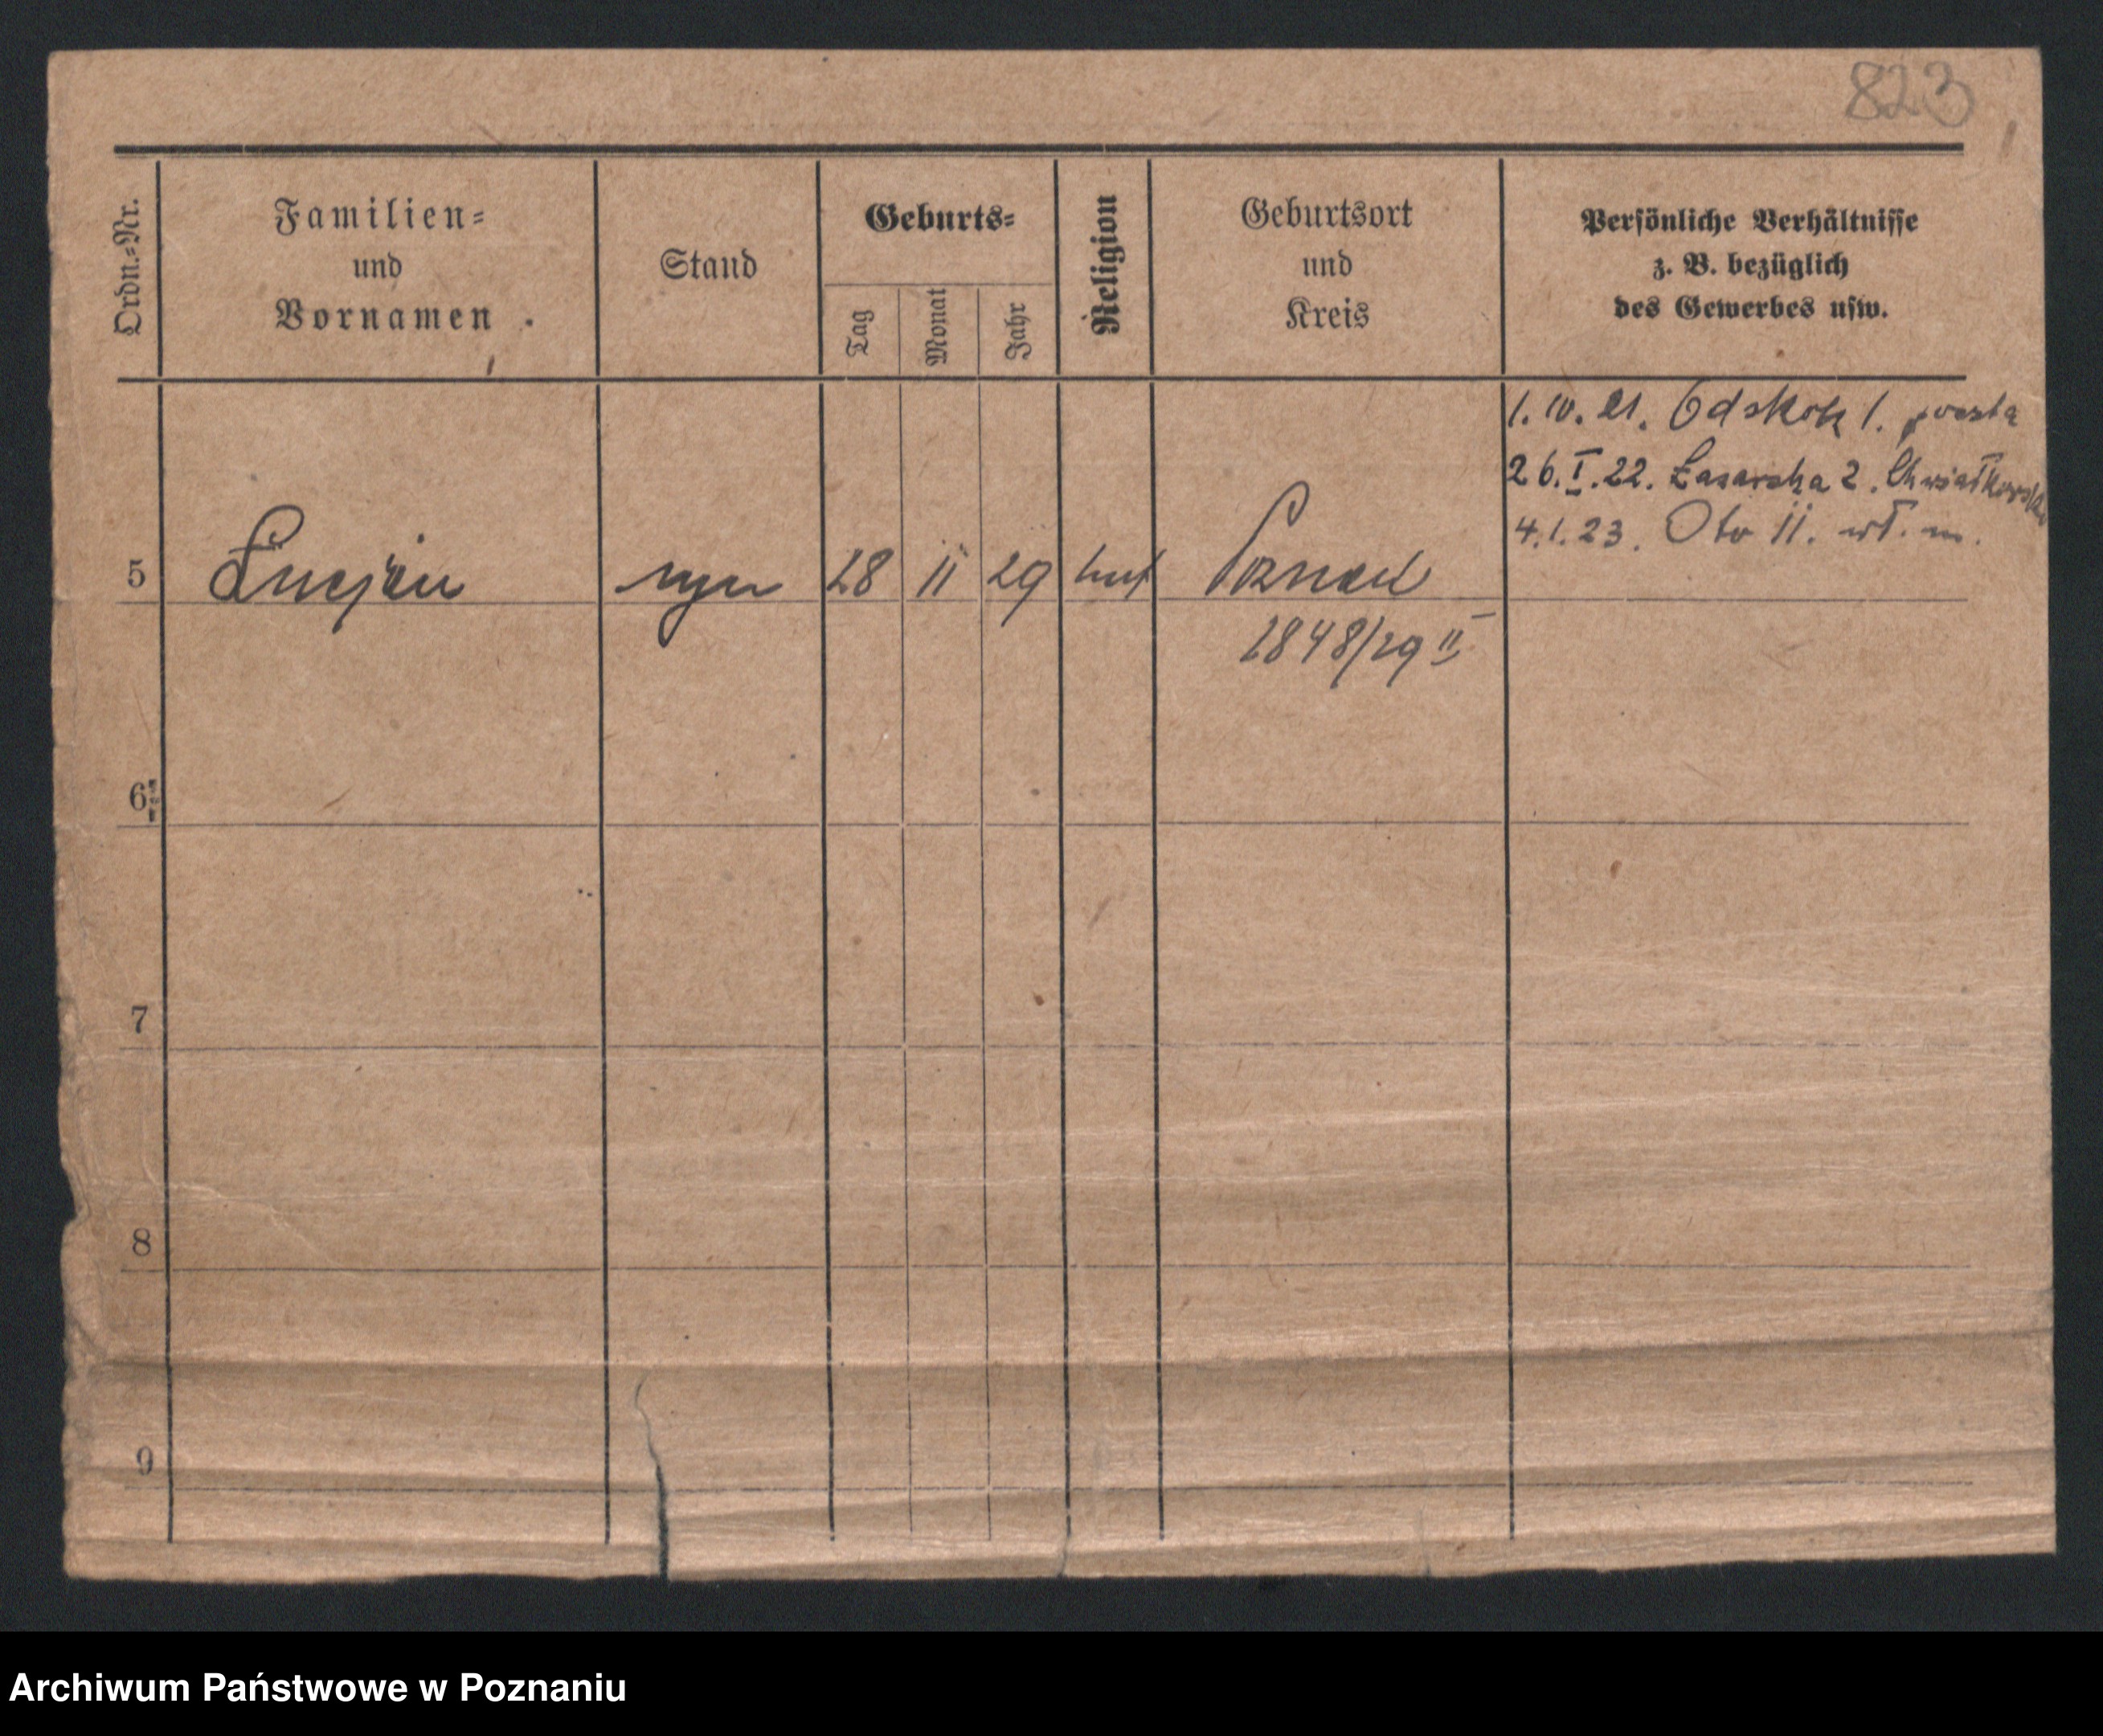 823
Ordn.=Nr.
Familien=
und
Vornamen
Stand
Geburts=
Tag
Monat
Jahr
Religion
Geburtsort
und
Kreis
Persönliche Verhältnisse
z. B. bezüglich
des Gewerbes usw.
1. IV. 21. Odskok 1.
26. I. 22. Łazarska 2. Chwiałkowska
4. 1. 23. Oto II. wł. m.
5 Lucjan syn 28 II 29 kat Poznań
1848/29 II
6
7
8
9
Archiwum Państwowe w Poznaniu